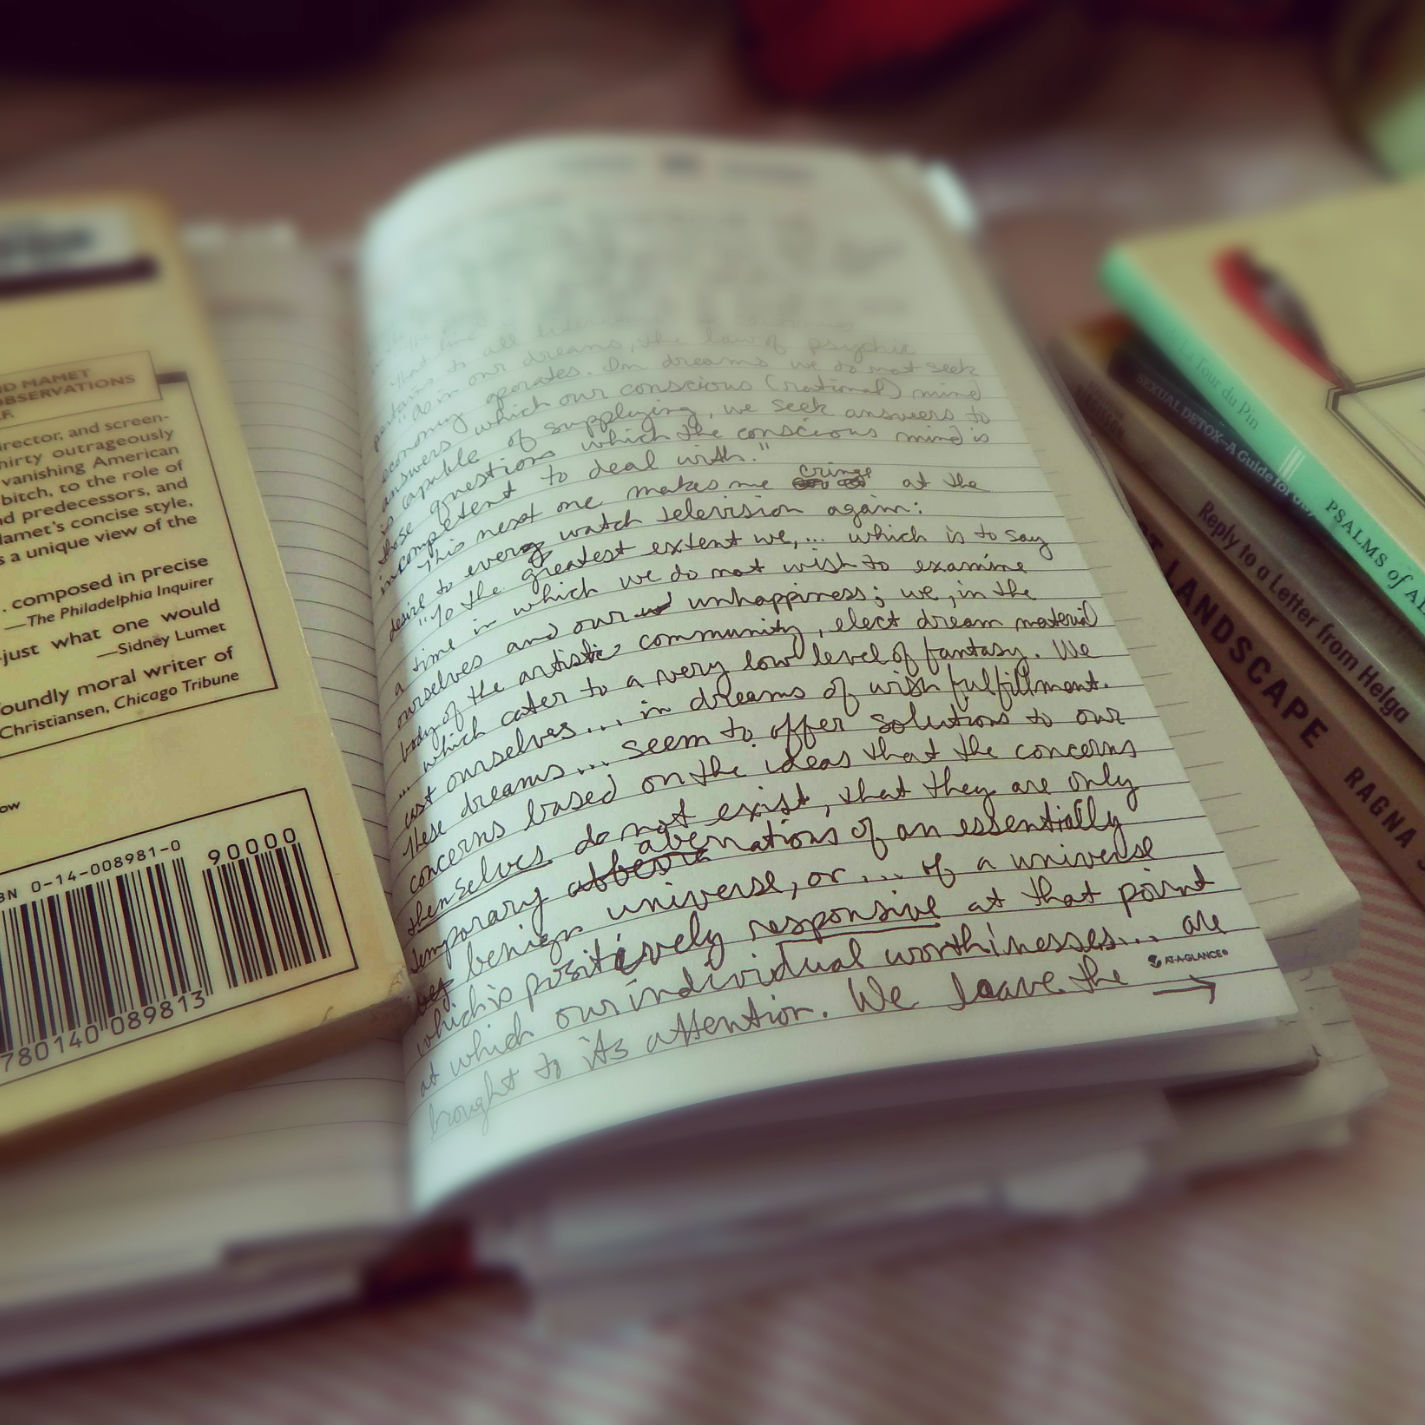 ND MAMET
OBSERVATIONS
irector, and screen-
hirty outrageously
vanishing American
bitch, to the role of
nd predecessors, and
lamet's concise style,
s a unique view of the
. composed in precise
—The Philadelphia Inquirer
just what one would
—Sidney Lumet
oundly moral writer of
Christiansen, Chicago Tribune
ow
BN 0-14-008981-0
90000
780140 089813
to all
"as in our dreams, the law of psychic
economy operates. In dreams we do not seek
answers which our conscious (rational) mind
is capable of supplying, we seek answers to
those questions which the conscious mind is
incompetent to deal with."
This next one makes me cringe at the
desire to ever watch television again:
"To the greatest extent we, ... which is to say
a time in which we do not wish to examine
ourselves and our unhappiness; we, in the
body of the artistic community, elect dream material
which cater to a very low level of fantasy. We
... cast ourselves ... in dreams of wish fulfillment.
These dreams ... seem to offer solutions to our
concerns based on the ideas that the concerns
themselves do not exist, that they are only
temporary abernations of an essentially
benign universe, or ... of a universe
which is positively responsive at that point
at which our individual worthinesses ... are
brought to its attention. We leave the →
AT-A-GLANCE®
La Tour du Pin
PSALMS of Al
SEXUAL DETOX—A Guide for Guy
Reply to a Letter from Helga
LANDSCAPE
RAGNA S